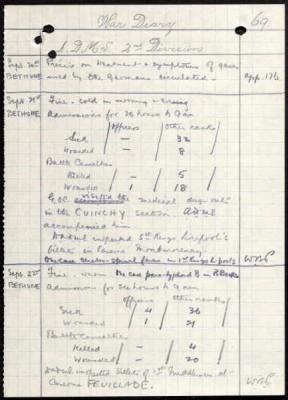 War Diary
69
A.D.M.S. 2nd Division
Sept. 20th Precis on treatment & symptoms of gases
BETHUNE used by the Germans circulated. App. 176
Sept. 21st Fine - cold in morning & evening
BETHUNE Admissions for 24 hours to 9 am
Officers Other ranks
Sick - 32
Wounded - 8
Battle Casualties
Killed - 5
Wounded 1 18
G.O.C. visited the medical dug outs
in the CUINCHY section. ADMS
accompanied him
DADMS inspected 5th Kings Liverpool's
billets, in Caserne Montmorency
One case cerebro-spinal fever in 1st Kings L'pools
Sept. 22nd Fine, warm. One case paratyphoid B in R. Berks
BETHUNE Admission for 24 hours to 9 am
Officers Other ranks
Sick 4 36
Wounded 1 21
Battle Casualties
Killed - 4
Wounded - 20
DADMS inspected billets of 1st Middlesex at
Caserne FEUILLADE.